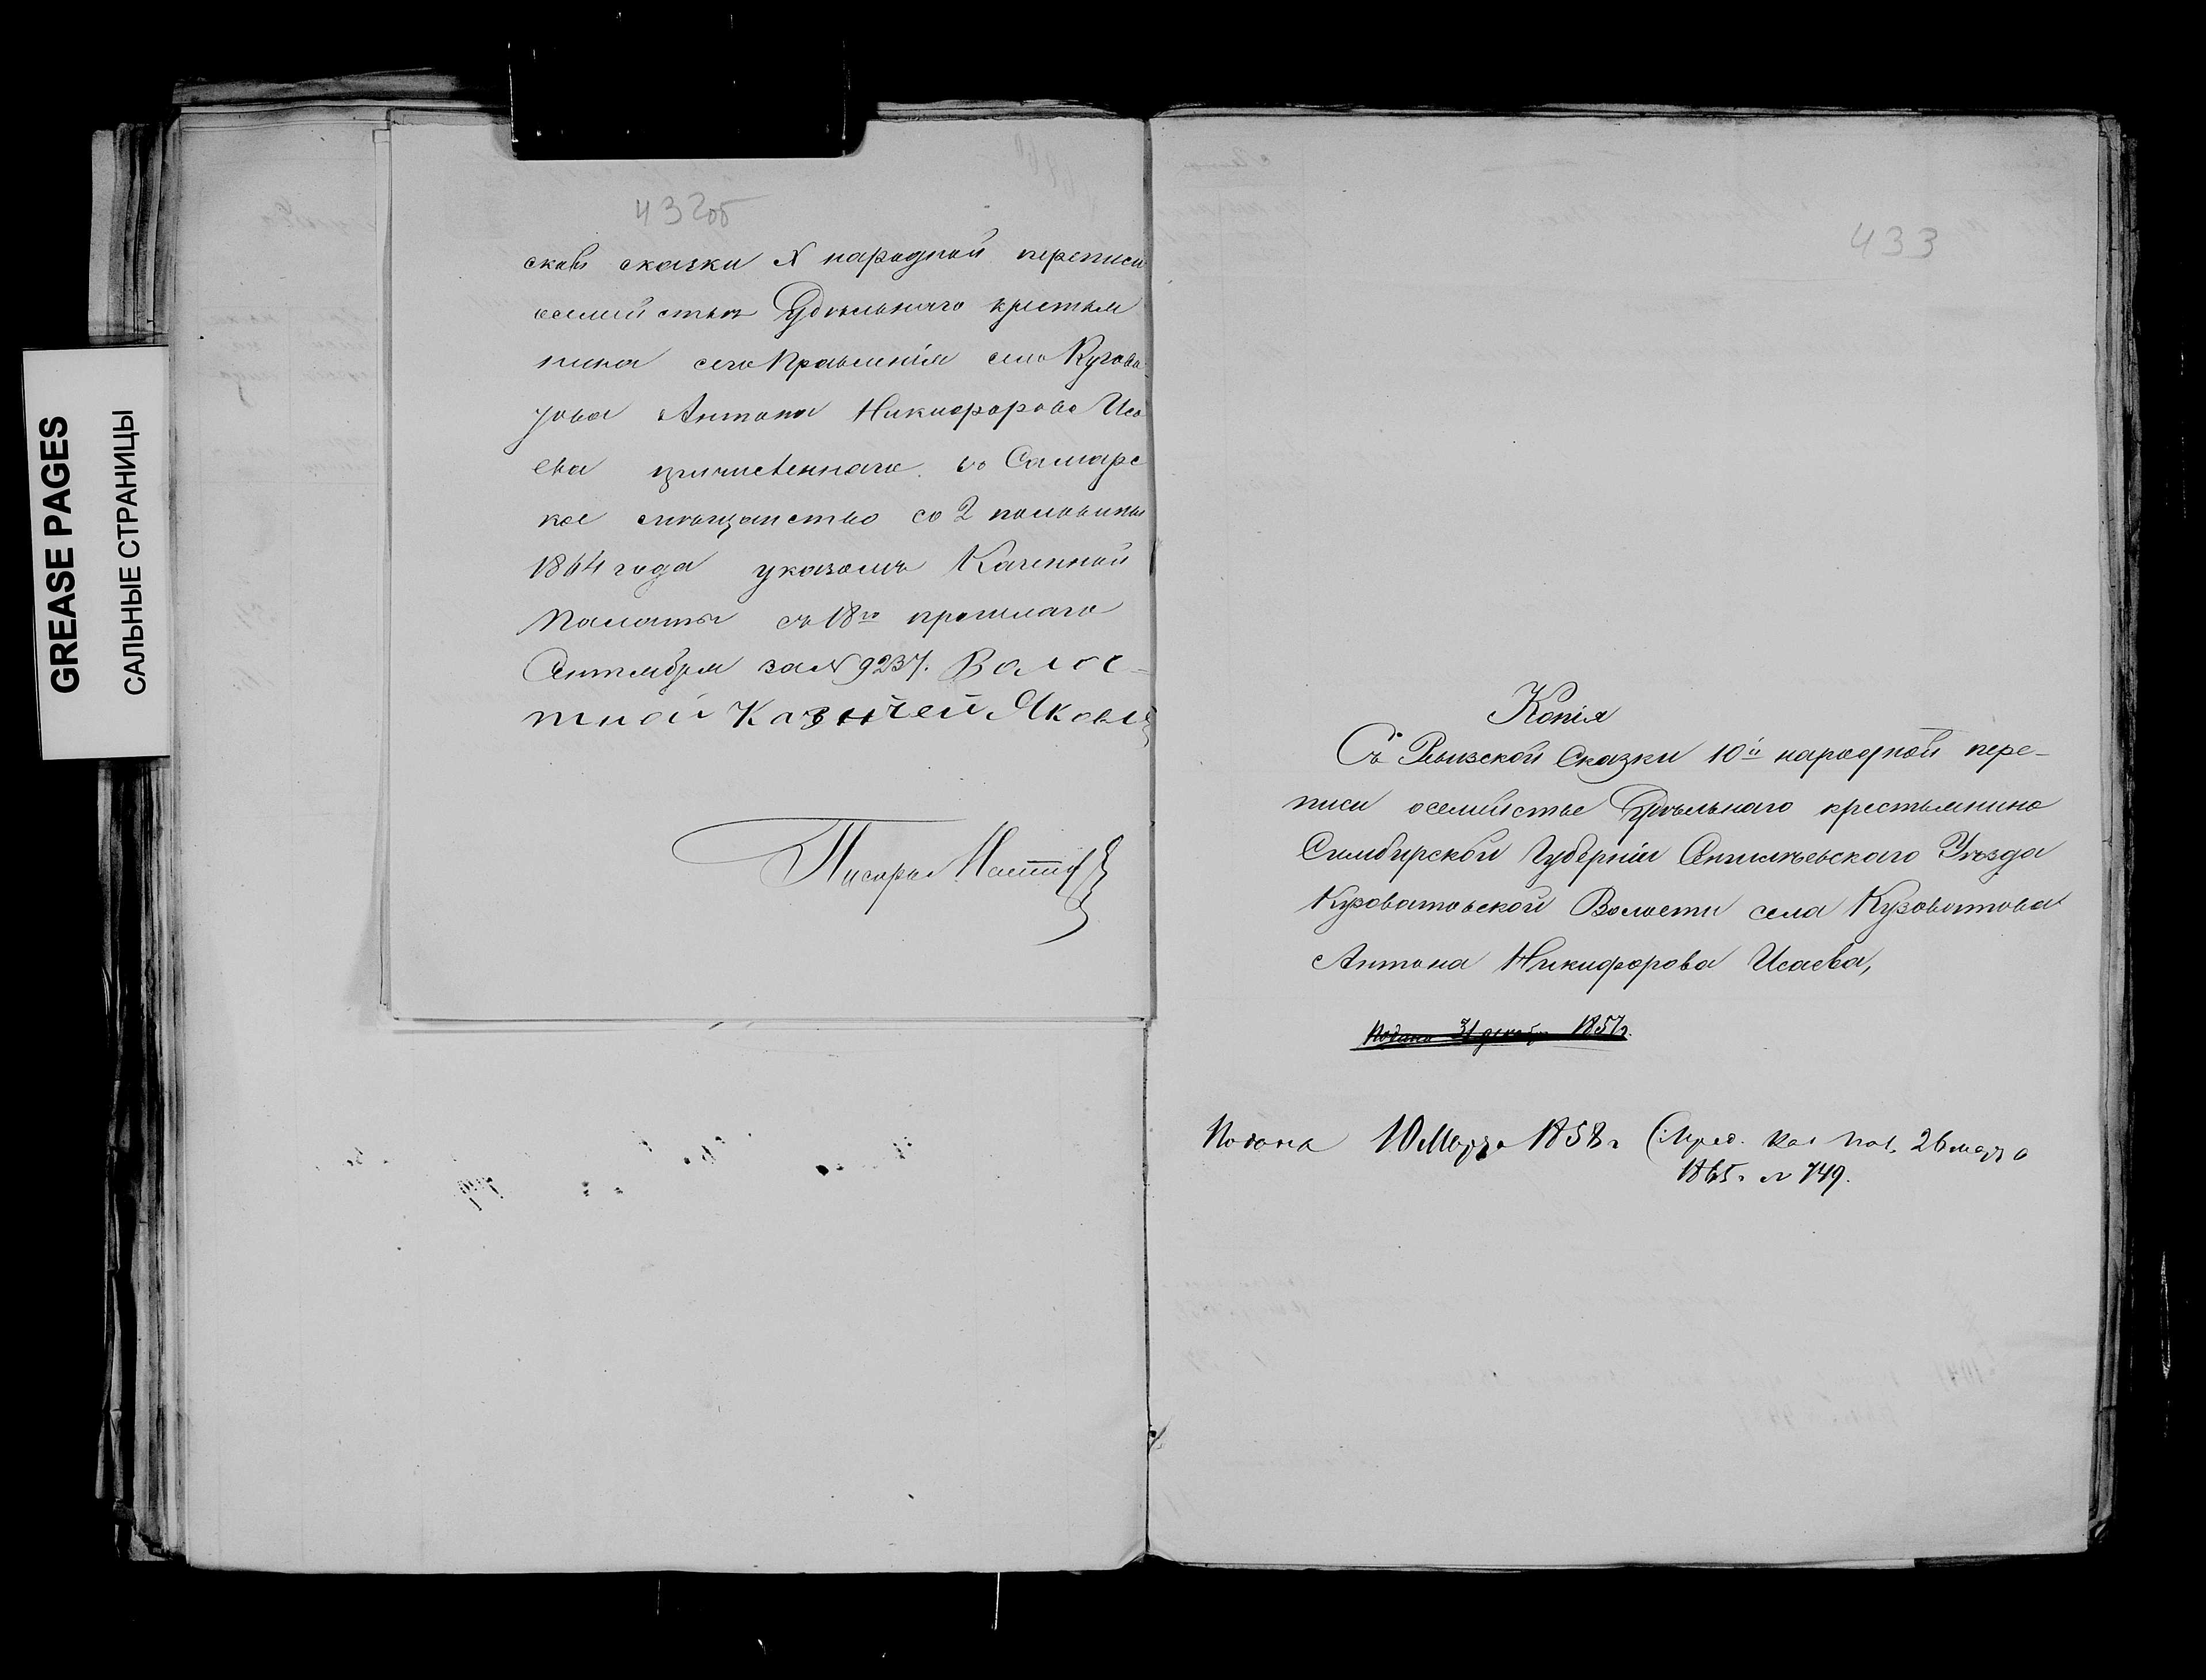 GREASE PAGES
САЛЬНЫЕ СТРАНИЦЫ
432об
ской сказки X народной переписи
осемействе Удѣльнаго крестья
нина сего Правленія села Кузова-
това Антона Никифорова Иса
ева причисленнаго въ Самарс
кое мѣщанство со 2 половины
1864 года указомъ Казенной
Палаты отъ 18го прошлаго
Сентября за N 9237. Волос-
тной Казначей Яковл
Писарь
433
Копія
Съ Ревизской Сказки 10й народной пере-
писи осемействе Удѣльнаго крестьянина
Симбирской Губерніи Сенгилѣевскаго Уѣзда
Кузоватовской Волости села Кузоватова
Антона Никифорова Исаева,
Подана 31 декабр 1857г.
Подана 10 Марта 1858г. (Пред. Каз. Пал. 26 марта
1865г. N 749.